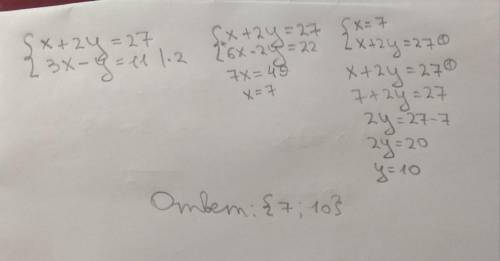 x+2y=27
3x-y=11 |·2
x+2y=27
6x-2y=22
7x=49
x=7
x=7
x+2y=27①
x+2y=27①
7+2y=27
2y=27-7
2y=20
y=10
Ответ: {7; 10}